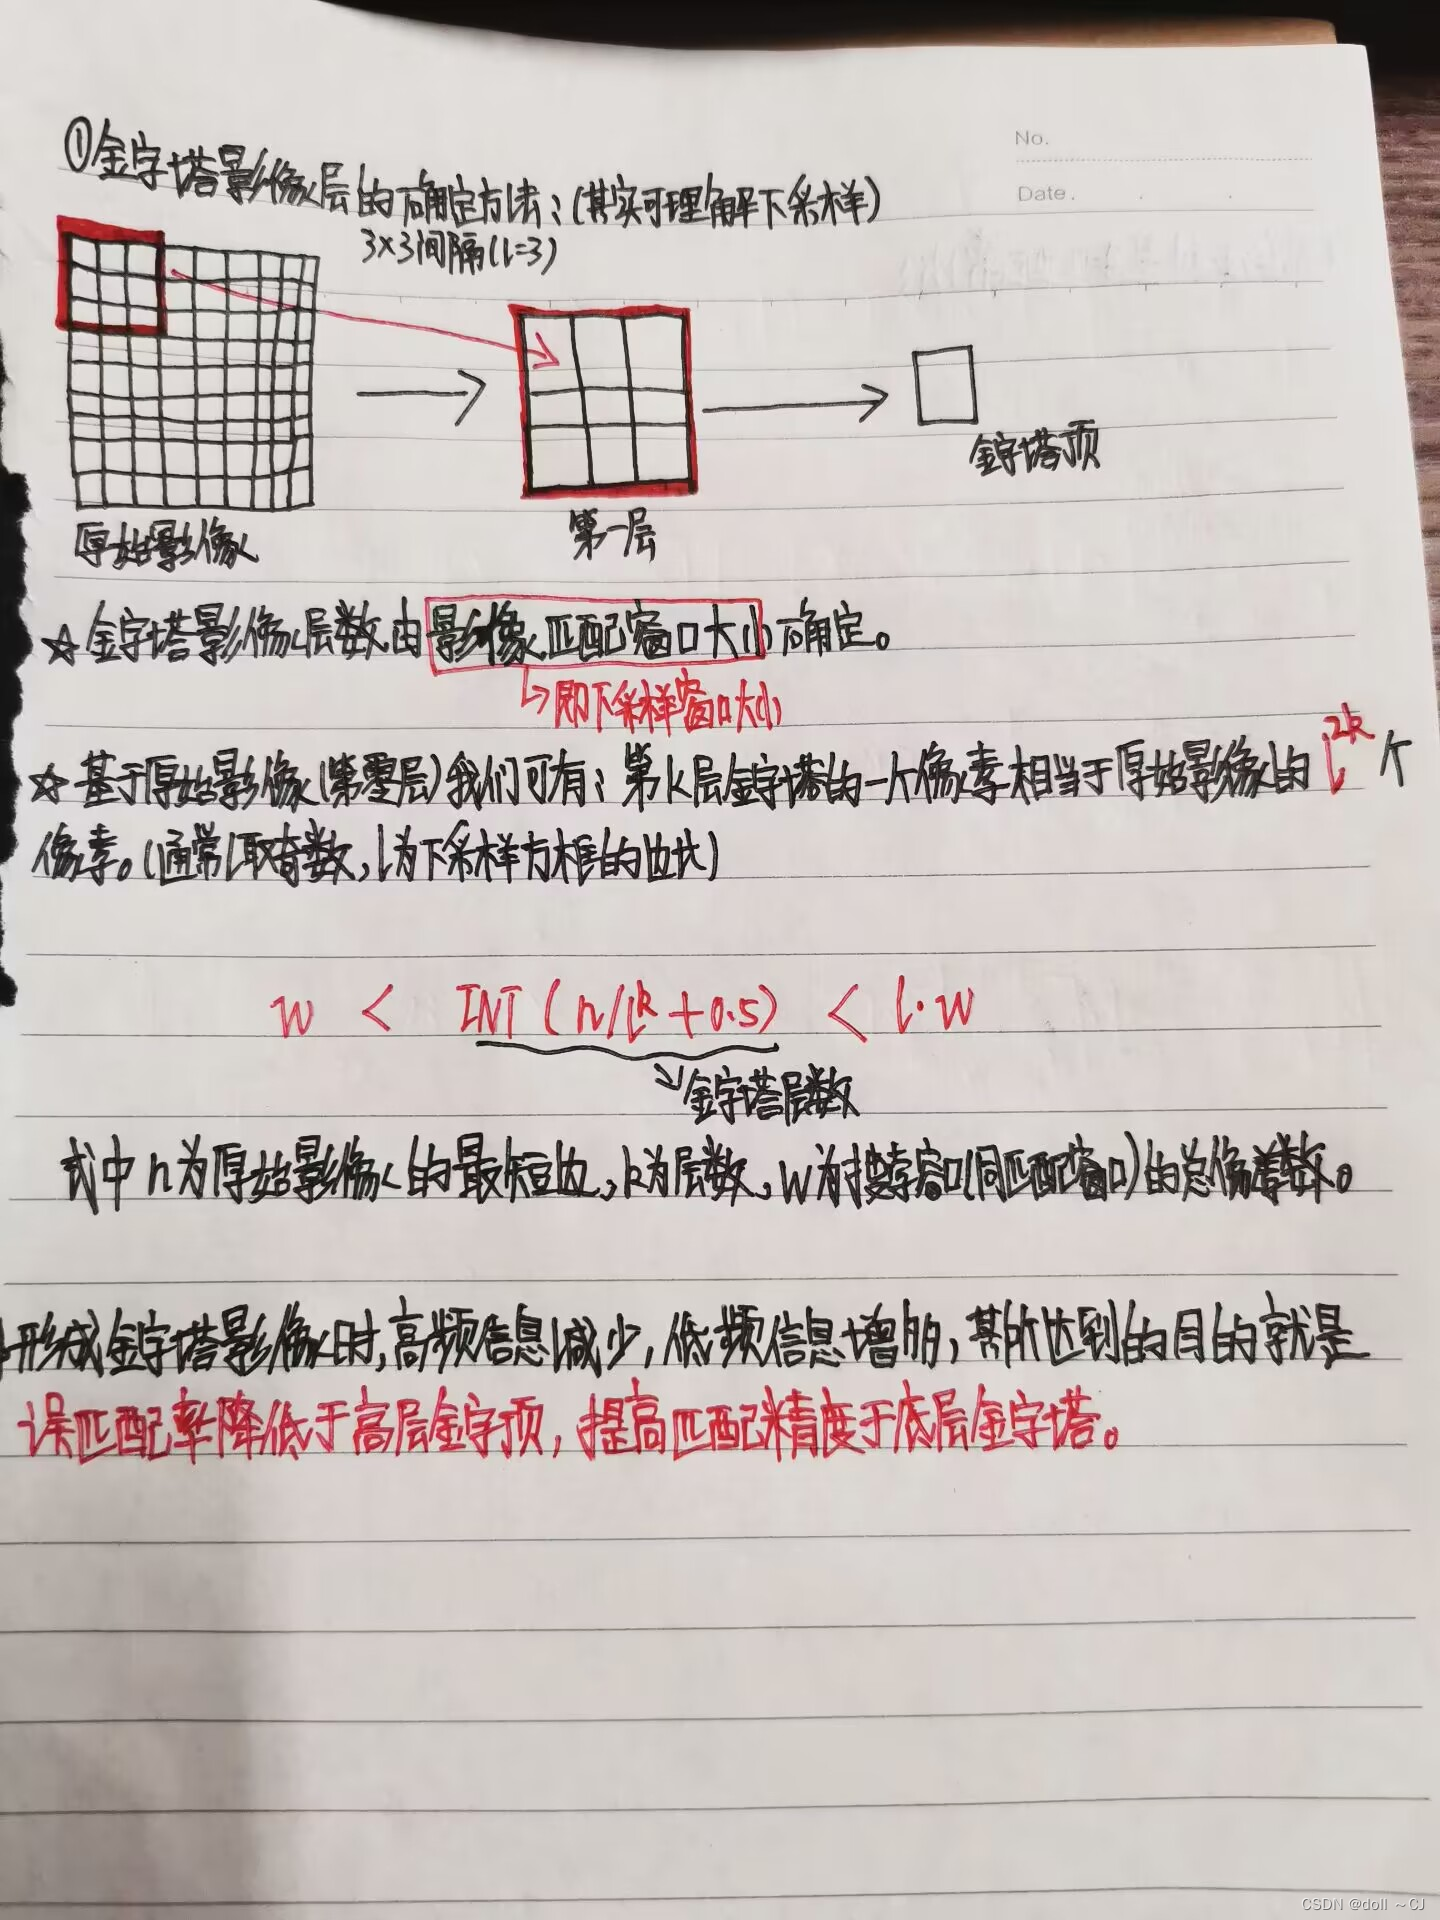 No.
Date.
①金字塔影像层的确定方法:(其实可理解下采样)
3×3间隔(l=3)
金字塔顶
原始影像
第一层
☆金字塔影像层数由影像匹配窗口大小确定。
↳即下采样窗口大小
☆基于原始影像(第零层)我们可有:第k层金字塔的一个像素相当于原始影像的l^{2k}个
像素。(通常l取奇数,l为下采样方框的边长)
w < INT(n/l^k+0.5) < l·w
金字塔层数
式中n为原始影像的最短边,k为层数,w为搜索窗口(同匹配窗口)的总像素数。
形成金字塔影像时,高频信息减少,低频信息增多,其所达到的目的就是
误匹配率降低于高层金字顶,提高匹配精度于底层金字塔。
CSDN @doll ~CJ